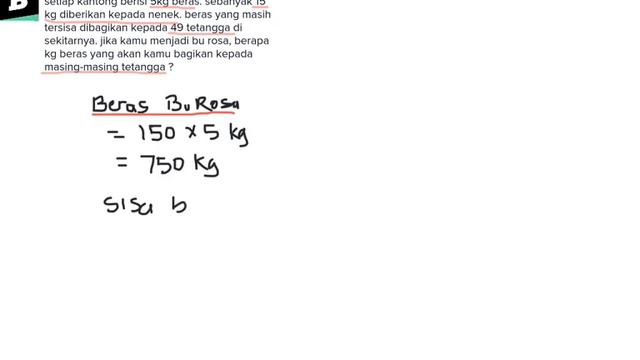 setiap kantong berisi 5kg beras. sebanyak 15
kg diberikan kepada nenek. beras yang masih
tersisa dibagikan kepada 49 tetangga di
sekitarnya. jika kamu menjadi bu rosa, berapa
kg beras yang akan kamu bagikan kepada
masing-masing tetangga ?
Beras Bu Rosa
= 150 × 5 kg
= 750 kg
Sisa b